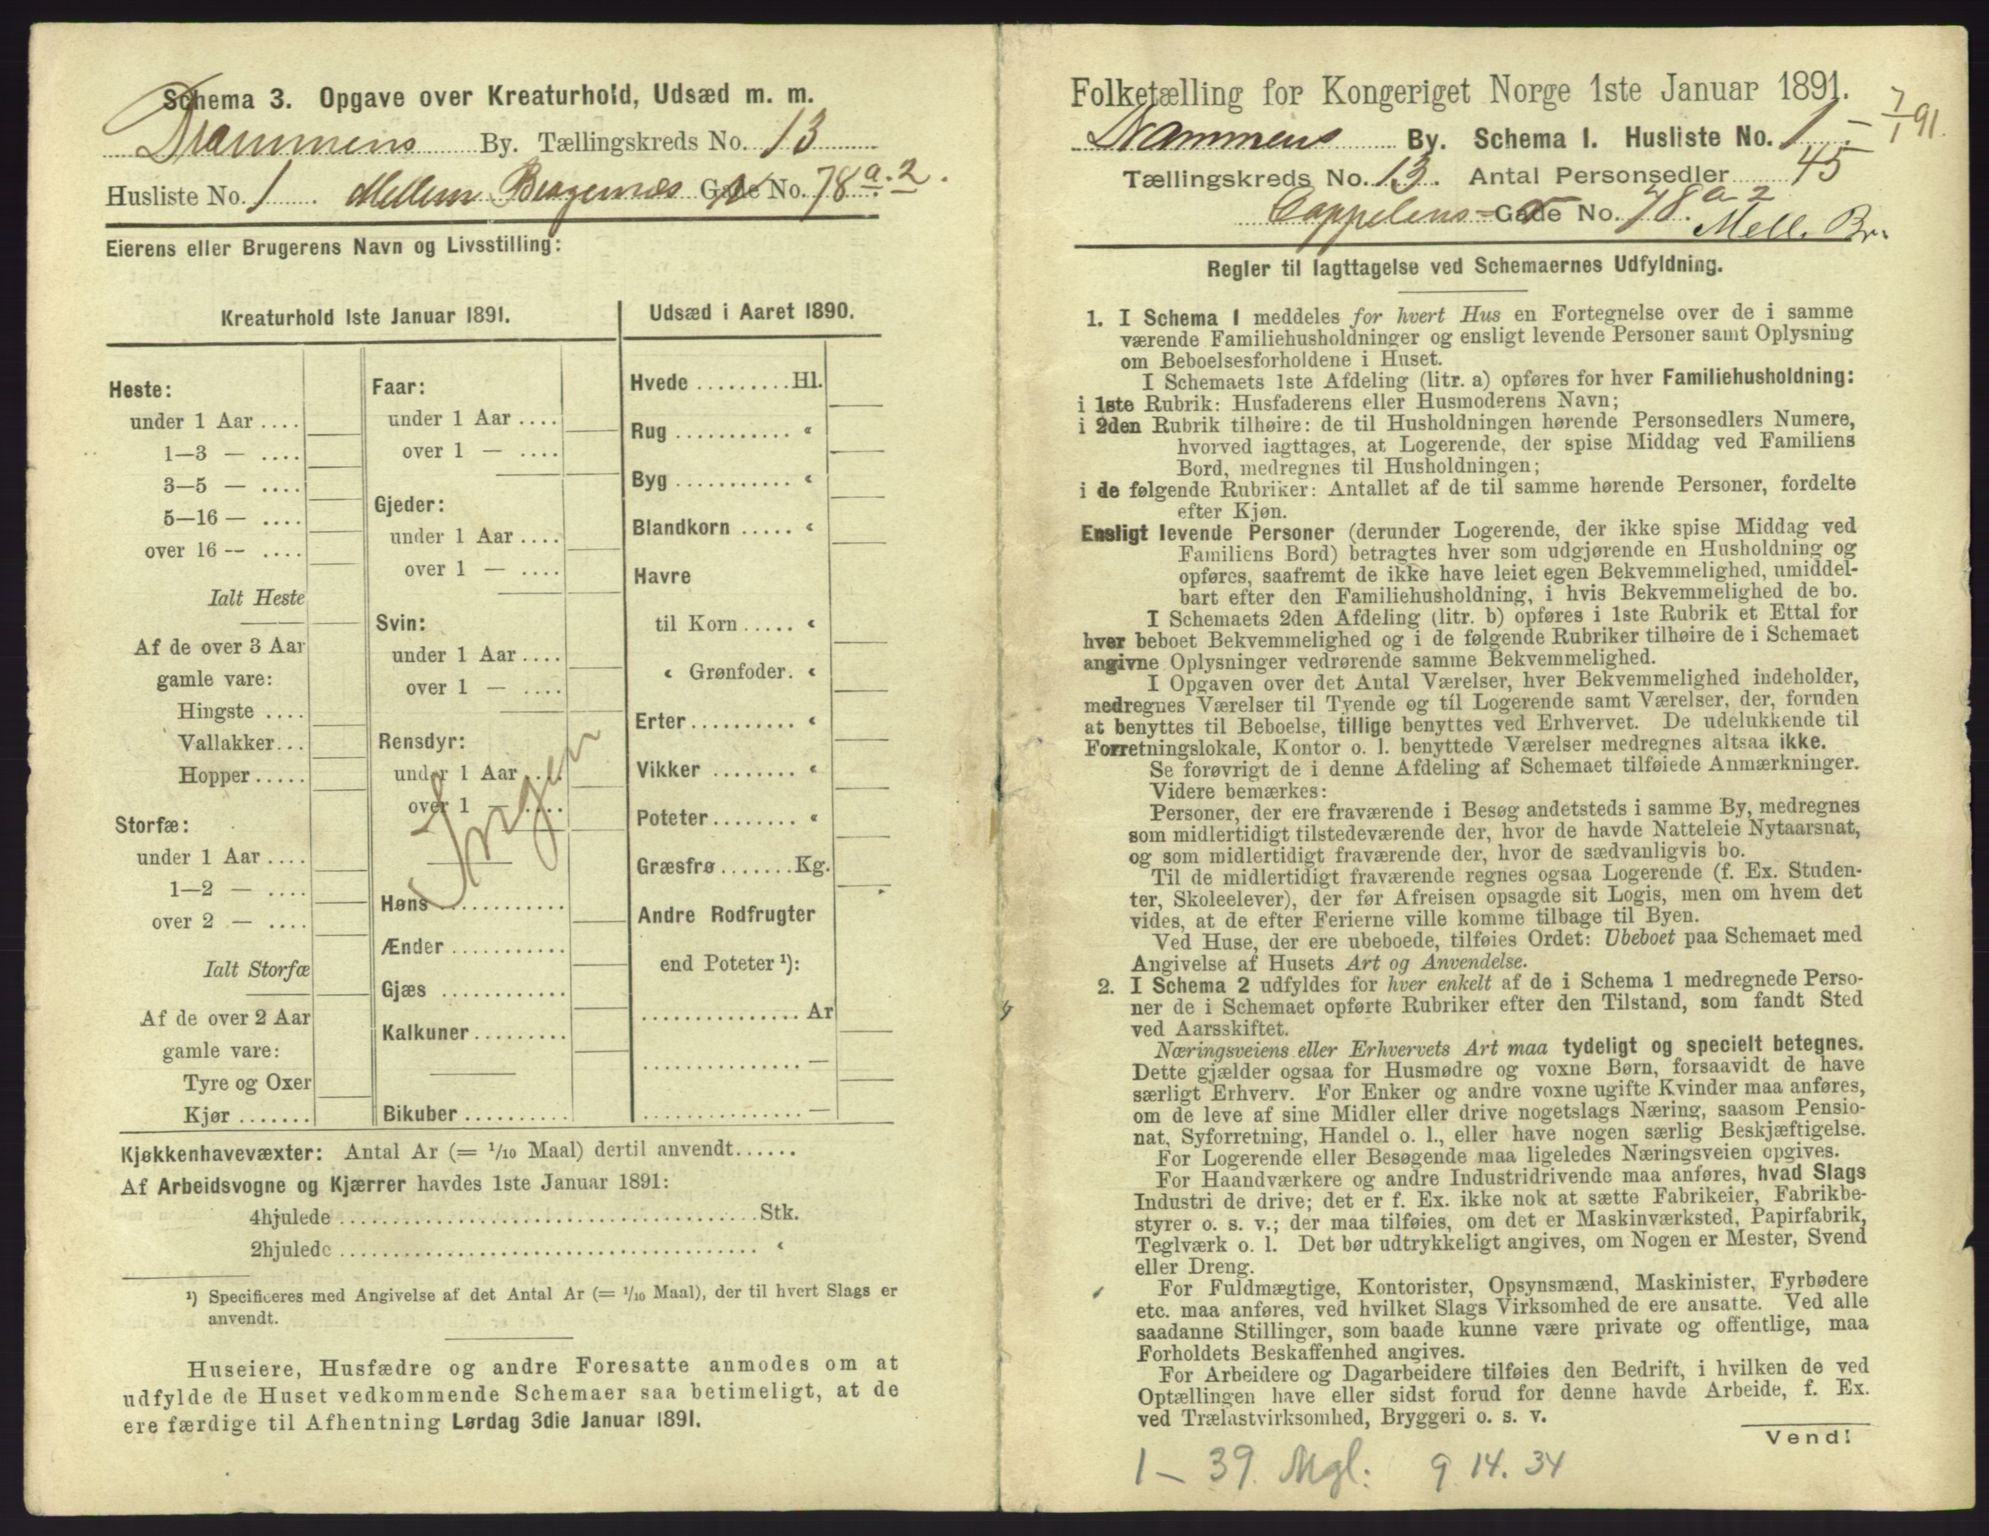 Schema 3. Opgave over Kreaturhold, Udsæd m. m.
Drammens By. Tællingskreds No. 13
Husliste No. 1 Mellem Bragernæs Gade No. 78 a. 2.
Eierens eller Brugerens Navn og Livsstilling:
Kreaturhold 1ste Januar 1891.
Heste:
under 1 Aar ....
1—3 — ....
3—5 — ....
5—16 — ....
over 16 — ....
Ialt Heste
Af de over 3 Aar
gamle vare:
Hingste ....
Vallakker...
Hopper.....
Storfæ:
under 1 Aar ....
1—2 — ....
over 2 — ....
Ialt Storfæ
Af de over 2 Aar
gamle vare:
Tyre og Oxer
Kjør .......
Faar:
under 1 Aar ....
over 1 — ....
Gjeder:
under 1 Aar ....
over 1 — ....
Svin:
under 1 Aar ....
over 1 — ....
Rensdyr:
under 1 Aar ....
over 1 — ....
Ingen
Høns ............
Ænder ...........
Gjæs ............
Kalkuner .........
Bikuber ..........
Udsæd i Aaret 1890.
Hvede .........Hl.
Rug ........... “
Byg ........... “
Blandkorn ..... “
Havre
til Korn ..... “
“ Grønfoder. “
Erter.......... “
Vikker ........ “
Poteter........ “
Græsfrø .......Kg.
Andre Rodfrugter
end Poteter ¹):
............... Ar
............... —
............... —
Kjøkkenhavevæxter: Antal Ar (= 1/10 Maal) dertil anvendt......
Af Arbeidsvogne og Kjærrer havdes 1ste Januar 1891:
4hjulede ........................................Stk.
2hjulede ........................................ “
¹) Specificeres med Angivelse af det Antal Ar (= 1/10 Maal), der til hvert Slags er
anvendt.
Huseiere, Husfædre og andre Foresatte anmodes om at
udfylde de Huset vedkommende Schemaer saa betimeligt, at de
ere færdige til Afhentning Lørdag 3die Januar 1891.
Folketælling for Kongeriget Norge 1ste Januar 1891.
7/1 91.
Drammens By. Schema I. Husliste No. 1 —
Tællingskreds No. 13. Antal Personsedler 45
Cappelens Gade No. 78. a 2
Mell. Br.
Regler til Iagttagelse ved Schemaernes Udfyldning.
1. I Schema I meddeles for hvert Hus en Fortegnelse over de i samme
værende Familiehusholdninger og ensligt levende Personer samt Oplysning
om Beboelsesforholdene i Huset.
I Schemaets 1ste Afdeling (litr. a) opføres for hver Familiehusholdning:
i 1ste Rubrik: Husfaderens eller Husmoderens Navn;
i 2den Rubrik tilhøire: de til Husholdningen hørende Personsedlers Numere,
hvorved iagttages, at Logerende, der spise Middag ved Familiens
Bord, medregnes til Husholdningen;
i de følgende Rubriker: Antallet af de til samme hørende Personer, fordelte
efter Kjøn.
Ensligt levende Personer (derunder Logerende, der ikke spise Middag ved
Familiens Bord) betragtes hver som udgjørende en Husholdning og
opføres, saafremt de ikke have leiet egen Bekvemmelighed, umiddel-
bart efter den Familiehusholdning, i hvis Bekvemmelighed de bo.
I Schemaets 2den Afdeling (litr. b) opføres i 1ste Rubrik et Ettal for
hver beboet Bekvemmelighed og i de følgende Rubriker tilhøire de i Schemaet
angivne Oplysninger vedrørende samme Bekvemmelighed.
I Opgaven over det Antal Værelser, hver Bekvemmelighed indeholder,
medregnes Værelser til Tyende og til Logerende samt Værelser, der, foruden
at benyttes til Beboelse, tillige benyttes ved Erhvervet. De udelukkende til
Forretningslokale, Kontor o. l. benyttede Værelser medregnes altsaa ikke.
Se forøvrigt de i denne Afdeling af Schemaet tilføiede Anmærkninger.
Videre bemærkes:
Personer, der ere fraværende i Besøg andetsteds i samme By, medregnes
som midlertidigt tilstedeværende der, hvor de havde Natteleie Nytaarsnat,
og som midlertidigt fraværende der, hvor de sædvanligvis bo.
Til de midlertidigt fraværende regnes ogsaa Logerende (f. Ex. Studen-
ter, Skoleelever), der før Afreisen opsagde sit Logis, men om hvem det
vides, at de efter Ferierne ville komme tilbage til Byen.
Ved Huse, der ere ubeboede, tilføies Ordet: Ubeboet paa Schemaet med
Angivelse af Husets Art og Anvendelse.
2. I Schema 2 udfyldes for hver enkelt af de i Schema 1 medregnede Perso-
ner de i Schemaet opførte Rubriker efter den Tilstand, som fandt Sted
ved Aarsskiftet.
Næringsveiens eller Erhvervets Art maa tydeligt og specielt betegnes.
Dette gjælder ogsaa for Husmødre og voxne Børn, forsaavidt de have
særligt Erhverv. For Enker og andre voxne ugifte Kvinder maa anføres,
om de leve af sine Midler eller drive nogetslags Næring, saasom Pensio-
nat, Syforretning, Handel o. l., eller have nogen særlig Beskjæftigelse.
For Logerende eller Besøgende maa ligeledes Næringsveien opgives.
For Haandværkere og andre Industridrivende maa anføres, hvad Slags
Industri de drive; det er f. Ex. ikke nok at sætte Fabrikeier, Fabrikbe-
styrer o. s. v.; der maa tilføies, om det er Maskinværksted, Papirfabrik,
Teglværk o. l. Det bør udtrykkeligt angives, om Nogen er Mester, Svend
eller Dreng.
For Fuldmægtige, Kontorister, Opsynsmænd, Maskinister, Fyrbødere
etc. maa anføres, ved hvilket Slags Virksomhed de ere ansatte. Ved alle
saadanne Stillinger, som baade kunne være private og offentlige, maa
Forholdets Beskaffenhed angives.
For Arbeidere og Dagarbeidere tilføies den Bedrift, i hvilken de ved
Optællingen have eller sidst forud for denne havde Arbeide, f. Ex.
ved Trælastvirksomhed, Bryggeri o. s. v.
Vend!
1 — 39. Mgl: 9 14. 34